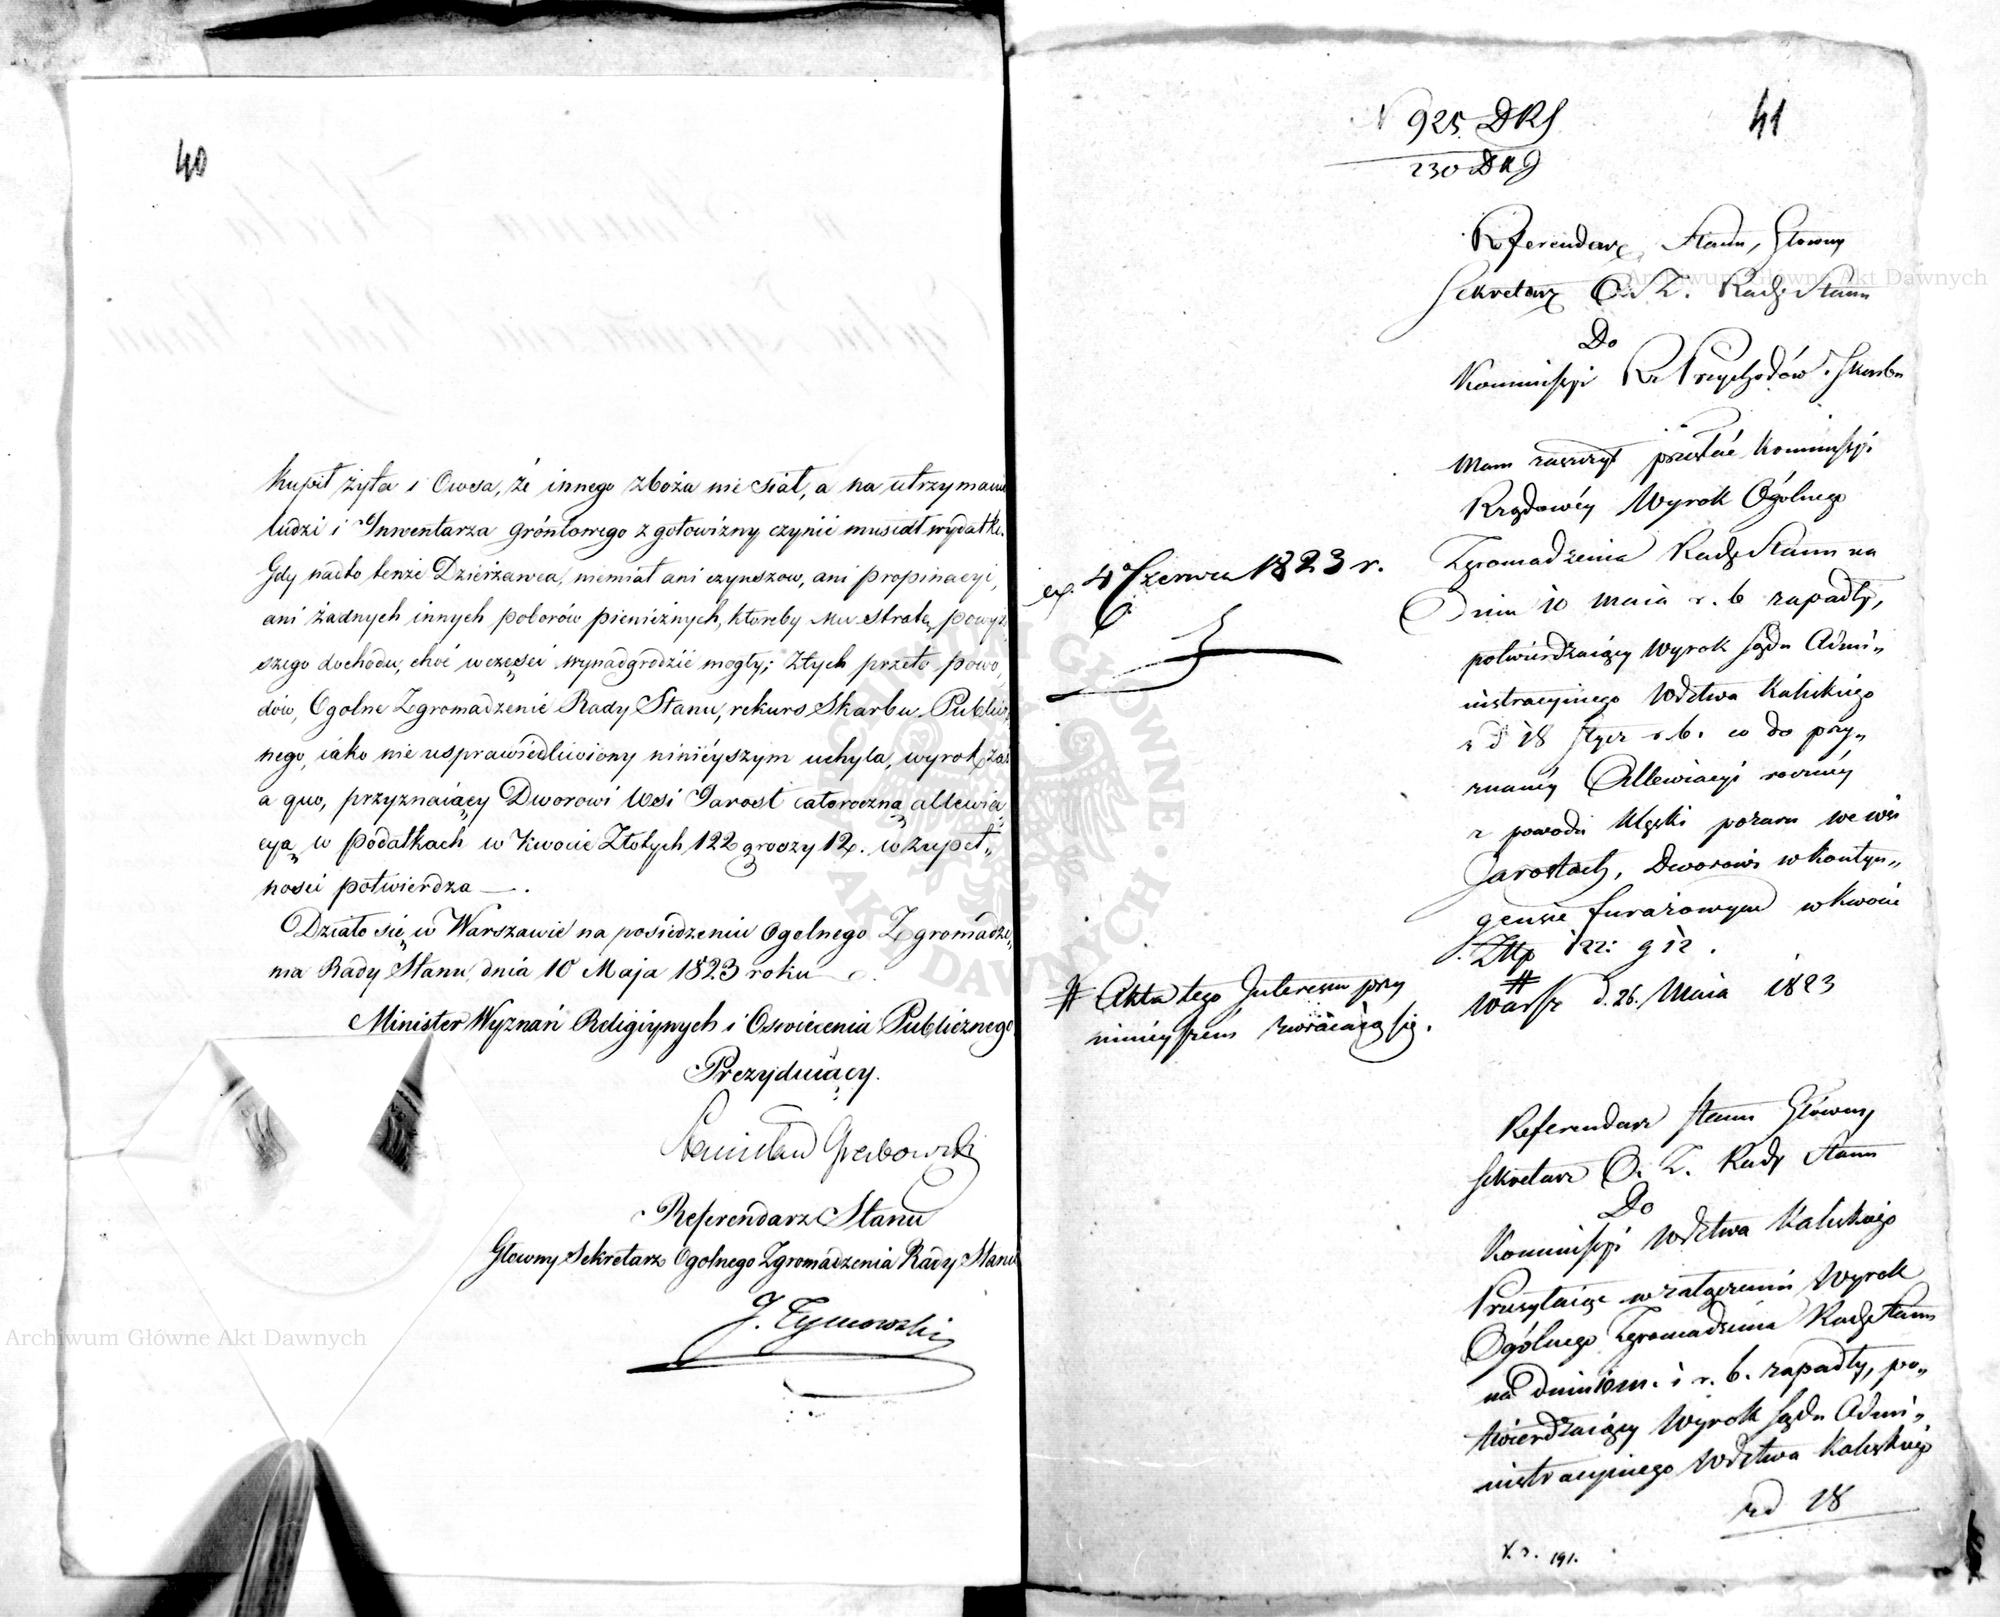 40
kupił żyta i Owsa, że innego zboża nie siał, a na utrzymanie
ludzi i Inwentarza gróntowego z gotowizny czynić musiał wydatki.
Gdy nadto tenże Dzierżawca, niemiał ani czynszow, ani propinacyi,
ani żadnych innych poborów pieniężnych, któreby mu stratę powyż,
szego dochodu, choć w części wynadgrodzić mogły; Ztych przeto powo,
dów, Ogolne Zgromadzenie Rady Stanu, rekurs Skarbu Publicz,
nego, iako nie usprawiedliwiony ninieyszym uchyla, wyrok zaś
a quo, przyznaiący Dworowi Wsi Jarost całoroczną allewia,
cyą w podatkach w kwocie Złotych 122 groszy 12. w zupeł„
ności potwierdza —.
Działo się w Warszawie na posiedzeniu Ogolnego Zgromadze„
nia Rady Stanu dnia 10 Maja 1823 roku
Minister Wyznań Religiynych i Oswiecenia Publicznego
Prezyduiący.
Stanisław Grabowski
Referendarz Stanu
Głowny Sekretarz Ogolnego Zgromadzenia Rady Stanu
J. Tymowski
41
N 925 DRS
230 DKJ
Referendarz Stanu, Głowny
Sekretarz O. Z. Rady Stanu
Do
Kommissyi Rz Przychodów i Skarbu
Mam zaszczyt przesłać Kommissyi
Rządowéy Wyrok Ogólnego
Zgromadzenia Rady Stanu na
Dniu 10 Maia r. b zapadły,
potwierdzaiący Wyrok Sądu Admi„
nistracyinego Wdztwa Kaliskiego
z d 18 Stycz r. b. co do przy„
znanéy Allewiacyi roczney
z powodu klęski pożaru we wsi
Jarostach, Dworowi w kontyn„
gensie furażowym w kwocie
Złtp 122: g 12.
#
Warsz d. 26. Maia 1823
ex. 4 Czerwca 1823 r.
# Akta tego Interessu przy
ninieyszem zwracaią się.
Referendarz Stanu Główny
Sekretarz O. Z. Rady Stanu
Do
Kommissyi Wdztwa Kaliskiego
Przesyłaiąc w załączeniu Wyrok
Ogólnego Zgromadzenia Rady Stanu
na dniu 10 m. i r. b. zapadły, po„
twierdzaiący Wyrok Sądu Admi„
nistracyinego Wdztwa Kaliskiego
z d 18
191.
Archiwum Główne Akt Dawnych
Archiwum Główne Akt Dawnych
ARCHIWUM GŁÓWNE AKT DAWNYCH